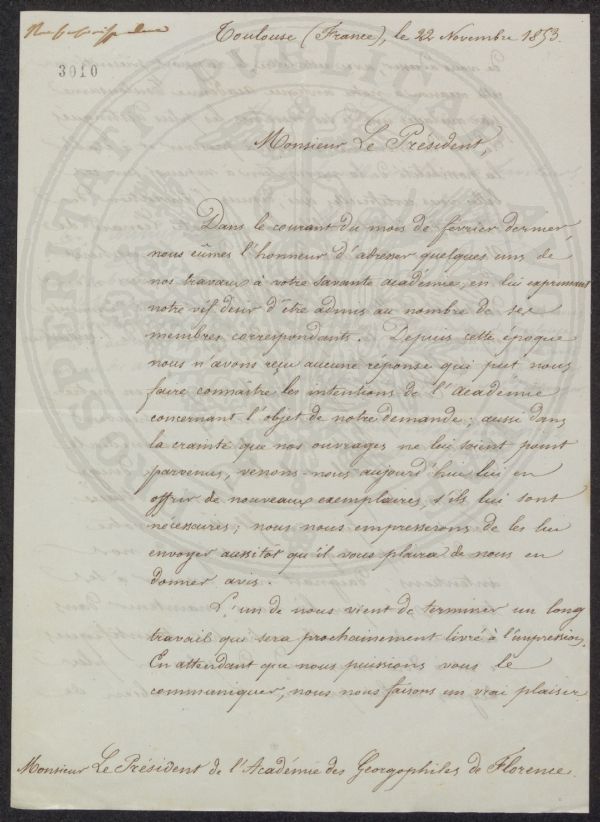 Toulouse (France), le 22 Novembre 1853.
3010
Monsieur Le Président,
Dans le courant du mois de février dernier,
nous eûmes l'honneur d'adresser quelques uns de
nos travaux à votre savante académie, en lui exprimant
notre vif désir d'être admis au nombre de ses
membres correspondants. Depuis cette époque
nous n'avons reçu aucune réponse qui put nous
faire connaître les intentions de l'Académie
concernant l'objet de notre demande; aussi dans
la crainte que nos ouvrages ne lui soient point
parvenus, venons-nous aujourd'hui lui en
offrir de nouveaux exemplaires, s'ils lui sont
nécessaires; nous nous empresserons de les lui
envoyer aussitôt qu'il vous plaira de nous en
donner avis.
L'un de nous vient de terminer un long
travail qui sera prochainement livré à l'impression.
En attendant que nous puissions vous le
communiquer, nous nous faisons un vrai plaisir
Monsieur Le Président de l'Académie des Georgophiles de Florence.
PROSPERITATI PUBLICAE